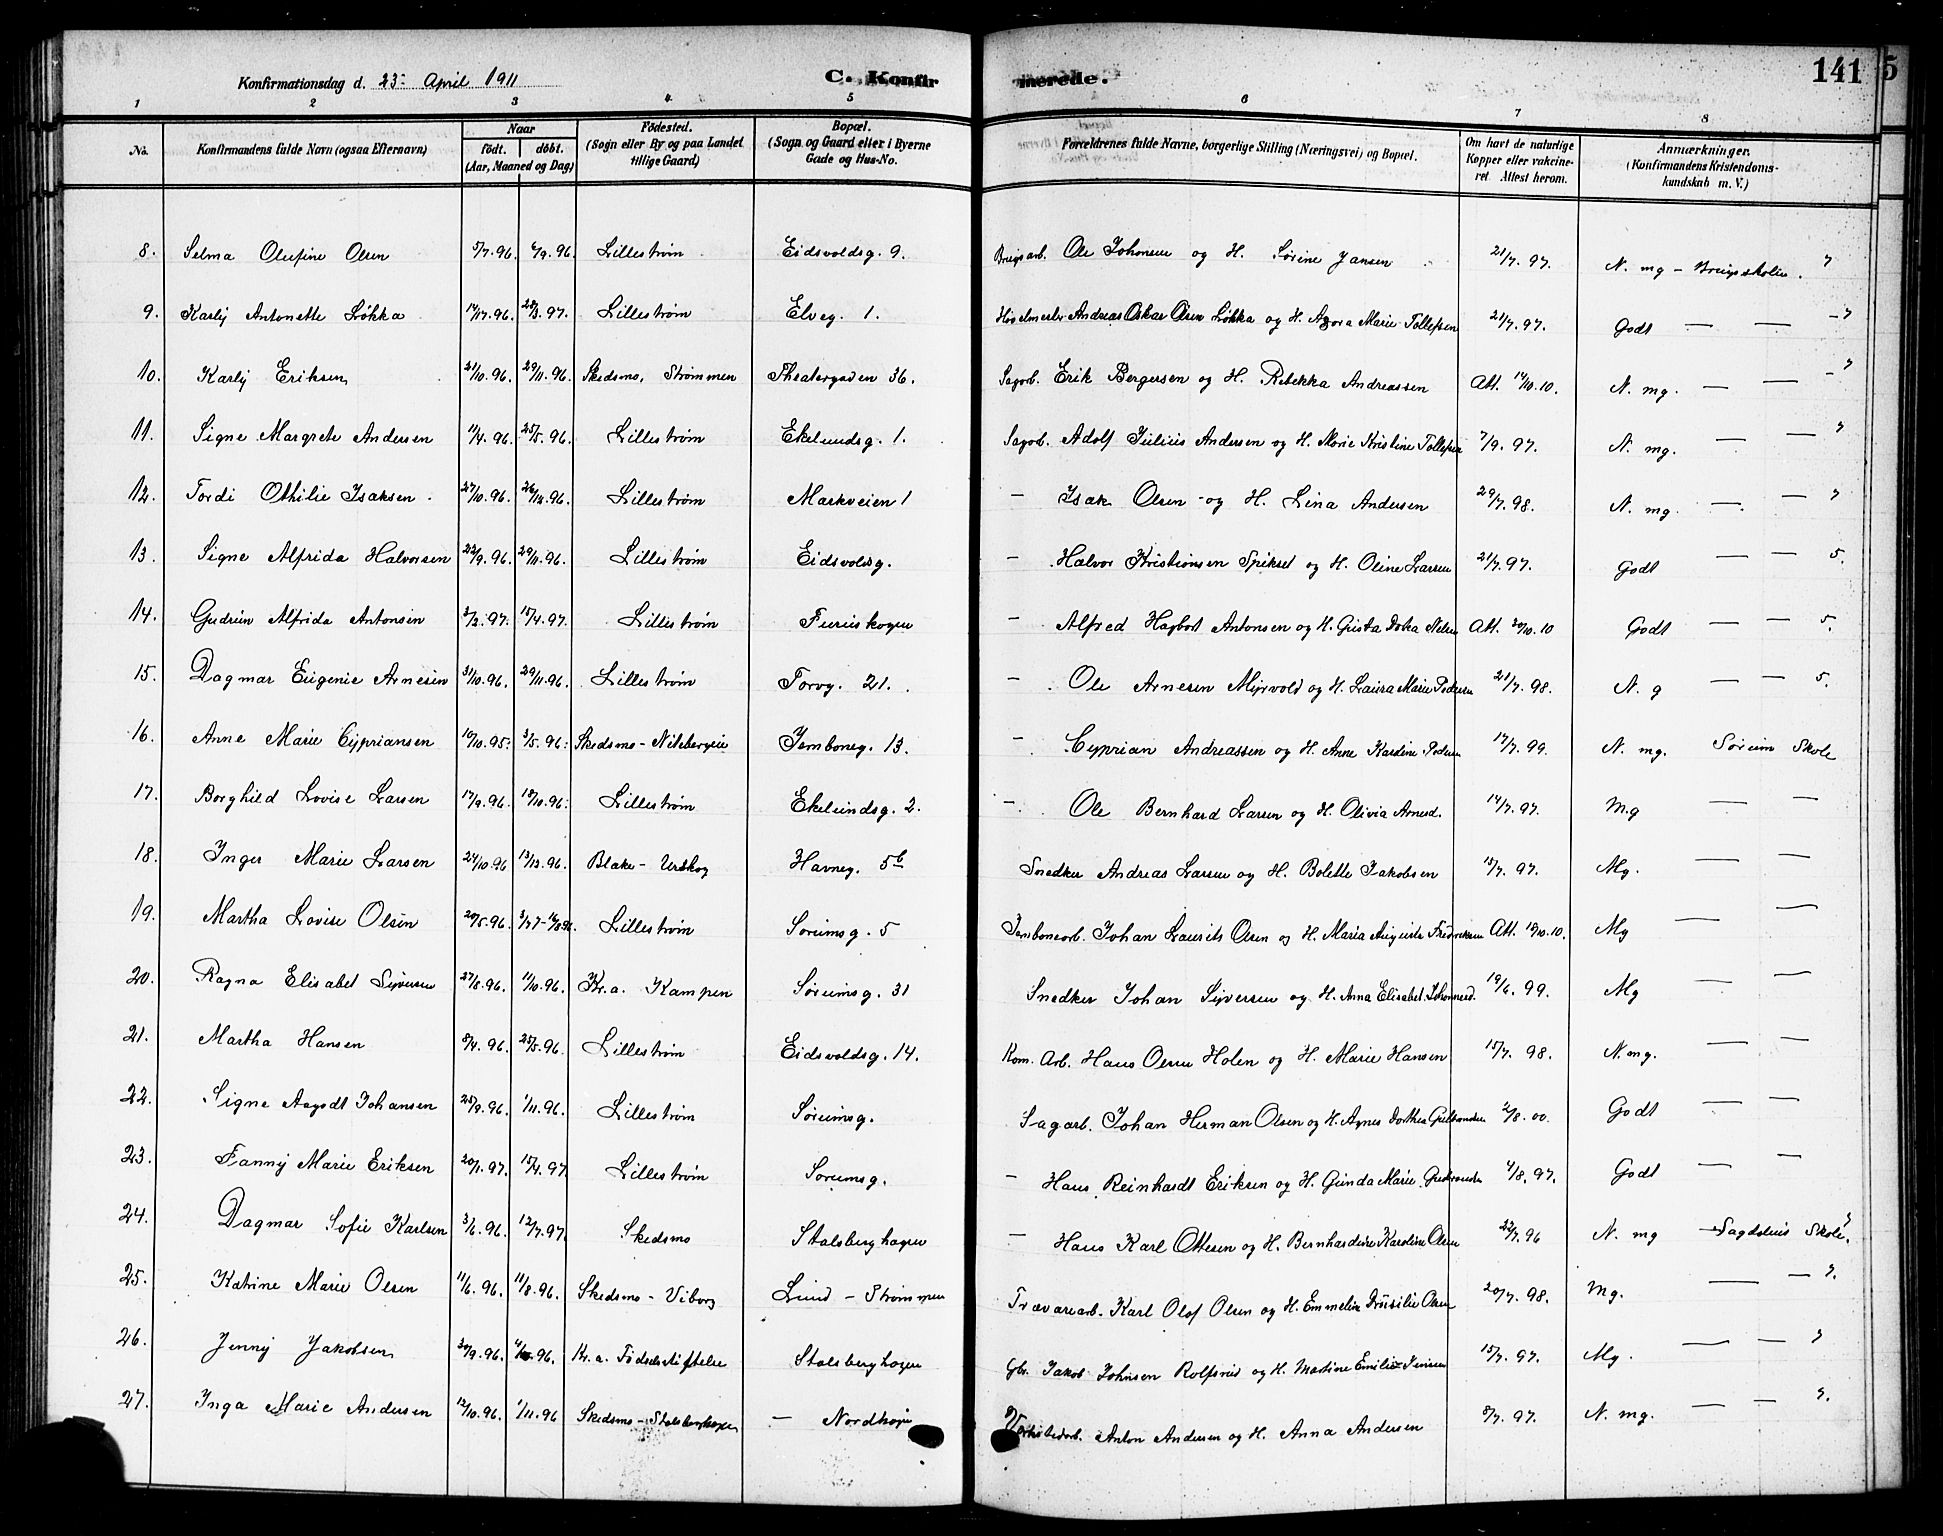 Konfirmationsdag d. 23. April 1911 C. Konfirmerede. 141 5
1 2 3 4 5 6 7 8
No. Konfirmandens fulde Navn (ogsaa Efternavn) Naar født. døbt. (Aar, Maaned og Dag) Fødested. (Sogn eller By og paa Landet tillige Gaard) Bopæl. (Sogn og Gaard eller i Byerne Gade og Hus-No. Forældrenes fulde Navne, borgerlige Stilling (Næringsvei) og Bopæl. Om havt de naturlige Kopper eller vakcineret Attest herom. Anmærkninger. (Konfirmandens Kristendomskundskab m. V.)
8. Selma Olufine Olsen 5/7.96. 6/9.96. Lillestrøm Eidsvoldsg. 9. Brugsarb. Ole Johansen og H. Sørine Jansen 21/7.97. N. mg - Brugsskolen.
9. Karly Antonette Løkka 28/3.97. Lillestrøm Elveg. 1. Andreas Oskar Olsen Løkka og H. Marie Tollefsen 21/7.97. Godt — —
10. Karly Eriksen 21/10.96. 29/11.96. Skedsmo, Strømmen Theatergaden 36. Sagarb. Erik Bergersen og H. Rebekka Andreassen Att. 14/10.10. N. mg. — —
11. Signe Margrete Andersen 11/4.96. 25/5.96. Lillestrøm Ekelundsg. 1. Sagarb. Adolf Julius Andersen og H. Marie Kristine Tollefsen 7/9.97. N. mg. — —
12. Tordi Othilie Isaksen 27/10.96. 26/12.96. Lillestrøm Markveien 1 – Isak Olsen og H. Lina Andersen 29/7.98. N. mg. — —
13. Signe Alfrida Halvorsen 22/9.96. 29/11.96. Lillestrøm Eidsvoldsg. – Halvor Kristiansen Spikset og H. Oline Larsen 21/7.97. Godt — — 5.
14. Gudrun Alfrida Antonsen 3/2.97. 15/4.97. Lillestrøm Furuskogen – Alfred Hagbart Antonsen og H. Gusta Nilsen Att. 20/10.10 Godt — — 5.
15. Dagmar Eugenie Arnesen 31/10.96. 29/11.96. Lillestrøm Torvg. 21. – Ole Arnesen Myrvold og H. Laura Marie Pedersen 21/7.98. N. g — — 5.
16. Anne Marie Cypriansen 10/10.95. 3/5.96. Skedsmo - Jernbaneg. 13. – Cyprian Andreassen og H. Anne Kardine Pedersen 17/7.99. N. mg. Sørum Skole
17. Borghild Lovise Larsen 17/9.96. 18/10.96. Lillestrøm Ekelundsg. 2. – Ole Bernhard Larsen og H. Olivia Arnesd. 14/7.97. M.g — —
18. Inger Marie Larsen 24/10.96 13/12.96. Blaker - Urskog Havneg. 5b Snedker Andreas Larsen og H. Bolette Jakobsen 15/7.97. Mg. — —
19. Martha Lovise Olsen 20/5.96. Lillestrøm Sørumsg. 5 Jernbanearb. Johan Laurits Olsen og H. Maria Augusta Fredriksen Att. 19/10.10. Mg — —
20. Ragna Elisabet Syversen 27/8.96. 11/10.96. Kr.a. Kampen Sørumsg. 31 Snedker Johan Syversen og H. Anna Elisabet Johannesd. 19/6.99. Mg — —
21. Martha Hansen 8/4.96. 25/5.96. Lillestrøm Eidsvoldsg. 14. Kom. Arb. Hans Olsen Holen og H. Marie Hansen 15/7.98. N. mg. — —
22. Signe Aagodt Johansen 25/9.96. 1/11.96. Lillestrøm Sørumsg. Sagarb. Johan Herman Olsen og H. Agnes Dorthea Gulbrandsen 2/8.00. Godt — —
23. Fanny Marie Eriksen 20/1.97. 15/4.97 Lillestrøm Sørumsg. – Hans Reinhardt Eriksen og H. Gunda Marie Gulbrandsen 4/8.97. Godt — —
24. Dagmar Sofie Karlsen 3/6.96. 12/7.97. Skedsmo Stalsberghagen – Hans Karl Ottesen og H. Bernhardine Karoline Olsen 22/7.96 N. mg - Sagdalens Skole.
25. Katrine Marie Olsen 11/6.96. 11/8.96. Skedsmo - Viborg Lund - Strømmen Trævarearb. Karl Olof Olsen og H. Emmelin Drusilie Olsen 20/7.98. Mg. — —
26. Jenny Jakobsen 30/9.96. Kr.a. Fødselsstiftelse Stalsberghagen Gbr. Jakob Johnsen Rolfsrud og H. Martine Emilie Jensen 15/7.97. Mg. — —
27. Inga Marie Andersen 12/10.96. 1/11.96 Skedsmo - Stalsberghagen – Nordhagen Verkstedarb. Anton Andersen og H. Anna Andersen 8/7.97. N. mg. — —